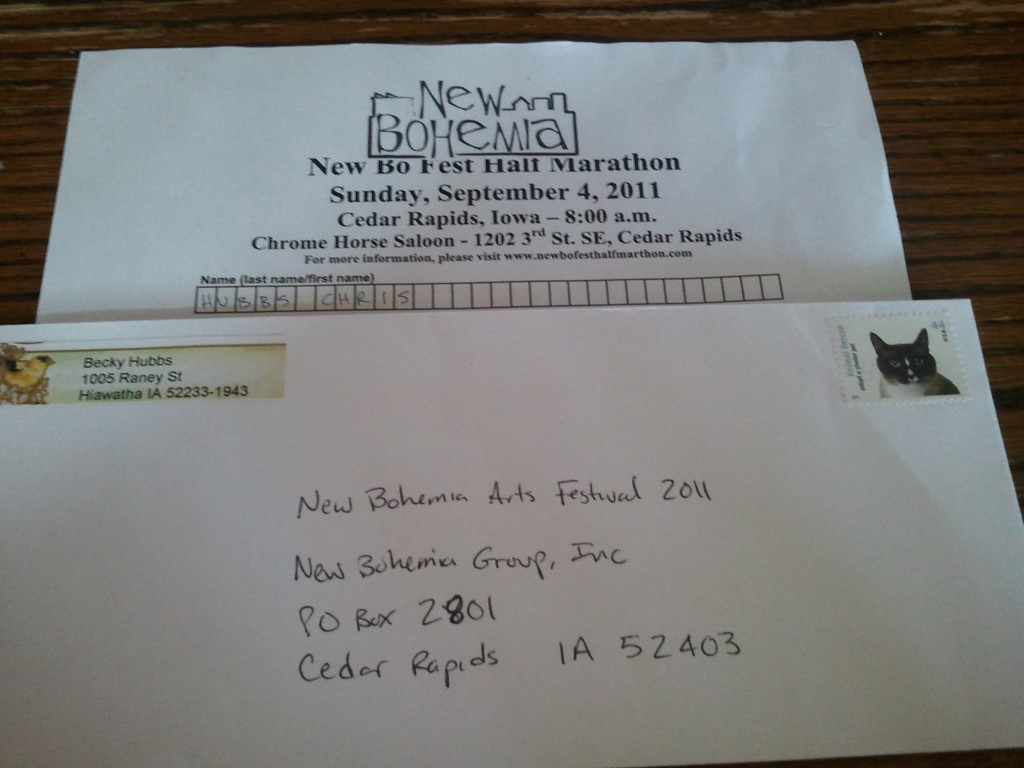 New
Bohemia
New Bo Fest Half Marathon
Sunday, September 4, 2011
Cedar Rapids, Iowa – 8:00 a.m.
Chrome Horse Saloon - 1202 3rd St. SE, Cedar Rapids
For more information, please visit www.newbofesthalfmarthon.com
Name (last name/first name)
HUBBS CHRIS
Becky Hubbs
1005 Raney St
Hiawatha IA 52233-1943
Animal Rescue
adopt a shelter pet
44
USA
New Bohemia Arts Festival 2011
New Bohemia Group, Inc
PO Box 2801
Cedar Rapids IA 52403